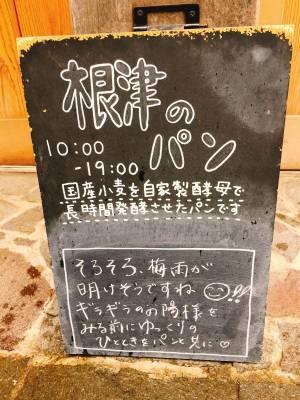 根津の
パン
10:00
-19:00
国産小麦を自家製酵母で
長時間発酵させたパンです
そろそろ、梅雨が
明けそうですね!!
ギラギラのお陽様を
みる前にゆっくりの
ひとときをパンと共に♡